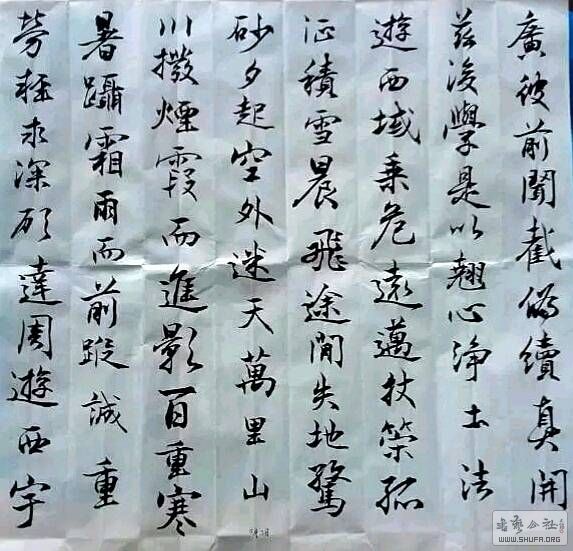 廣彼前聞截偽續真開
茲後學是以翹心淨土法
遊西域乘危遠邁杖策孤
征積雪晨飛途間失地驚
砂夕起空外迷天萬里山
川撥煙霞而進影百重寒
暑躡霜雨而前蹤誠重
勞輕求深願達周遊西宇
書藝公社
WWW.SHUFA.ORG